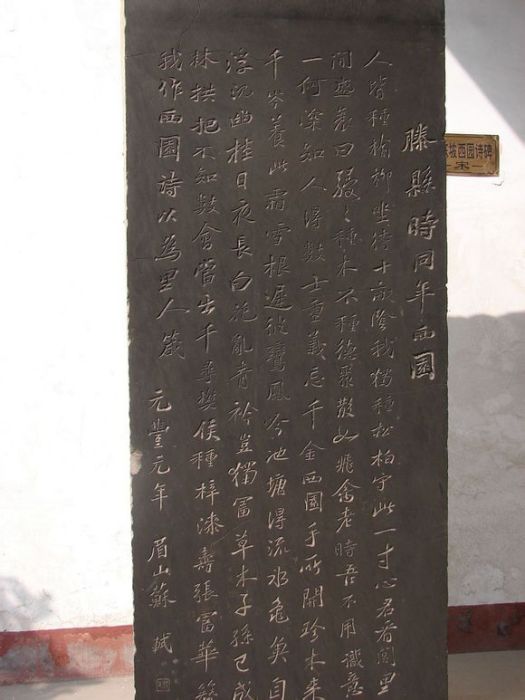 滕縣時同年西園
人皆種榆柳坐待十畝陰我獨種松柏守此一寸心君看閭里
間盛衰日駸々種木不種德聚散如飛禽老時吾不用識意
一何深知人得數士重義忘千金西園手所開珍木來
千岑養此霜雪根遲彼鸞鳳吟池塘得流水龜魚自
浮沉幽桂日夜長白花亂青衿豈獨富草木子孫已成
林拱把不知數會當出千尋樊侯種梓漆壽張富華簪
我作西園詩以為里人箴
元豐元年 眉山蘇軾
坡西园诗碑
—宋—